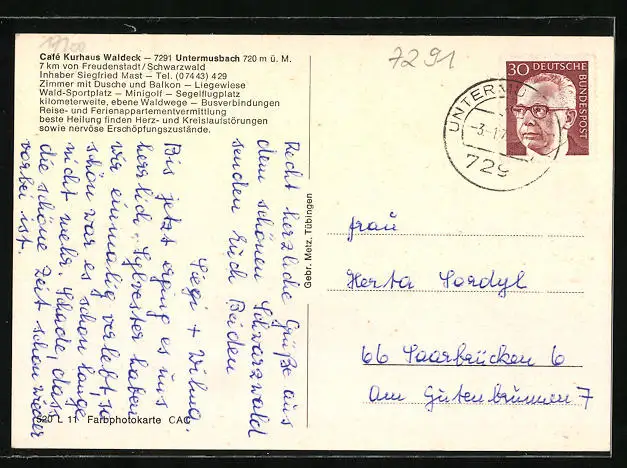 17700
7291
Café Kurhaus Waldeck — 7291 Untermusbach 720 m ü. M.
7 km von Freudenstadt/Schwarzwald
Inhaber Siegfried Mast — Tel. (07443) 429
Zimmer mit Dusche und Balkon — Liegewiese
Wald-Sportplatz — Minigolf — Segelflugplatz
kilometerweite, ebene Waldwege — Busverbindungen
Reise- und Ferienappartementvermittlung
beste Heilung finden Herz- und Kreislaufstörungen
sowie nervöse Erschöpfungszustände.
30 DEUTSCHE
BUNDESPOST
UNTERMU
-3.-1.7
729
Recht herzliche Grüße aus
dem schönen Schwarzwald
senden Euch Beiden
Siegi + Wilma.
Bis jetzt erging es uns
herrlich. Sylvester haben
wir einmalig verlebt, so
schön war es schon lange
nicht mehr. Schade, dass
die schöne Zeit schon wieder
vorbei ist.
Gebr. Metz, Tübingen
Frau
Herta Sordyl
66 Saarbrücken 6
Am Gutenbrunnen 7
L 11 Farbphotokarte CAC